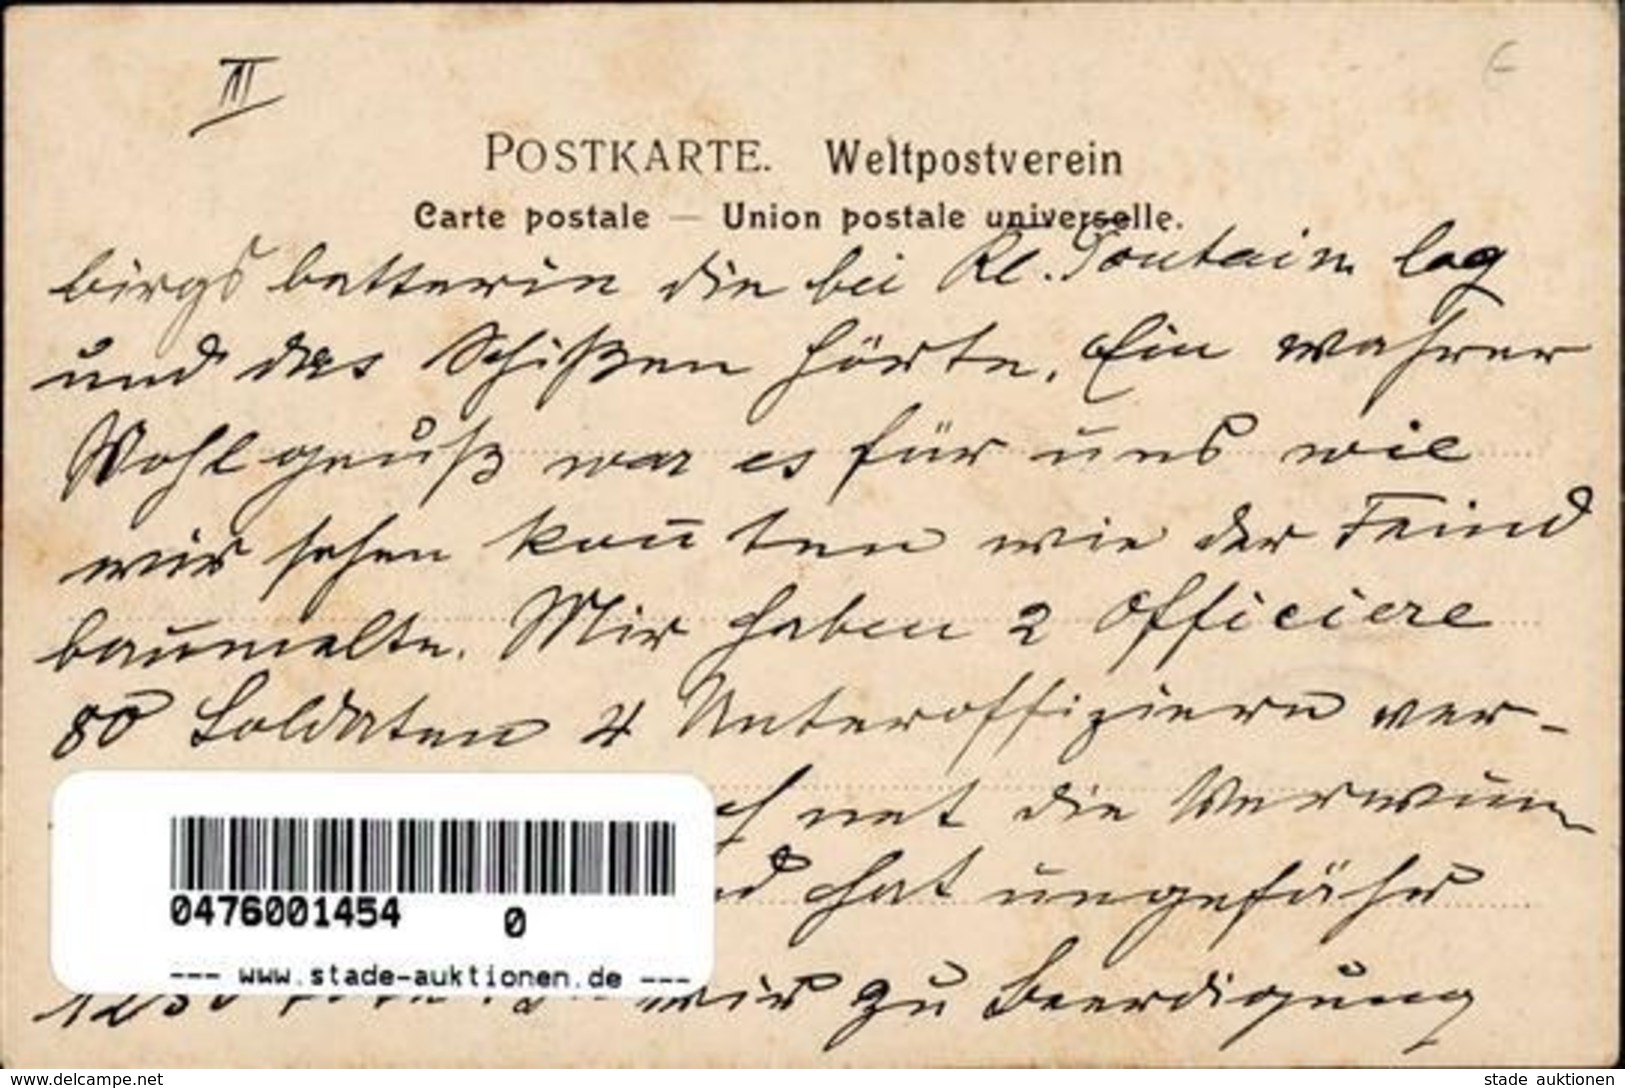 III
POSTKARTE. Weltpostverein
Carte postale — Union postale universelle.
birgsbatterin die bei Kl. Tontain lag
und das Schißen hörte. Ein wahrer
Wohlgenuß war es für uns wie
wir sehen kon̄ten wie der Feind
baumelte. Mir haben 2 Officiere
80 Soldaten 4 Unteroffiziern ver-
net die Verwun
hat ungefähr
wir zu Beerdigung
0476001454 0
--- www.stade-auktionen.de ---
www.delcampe.net
stade auktionen